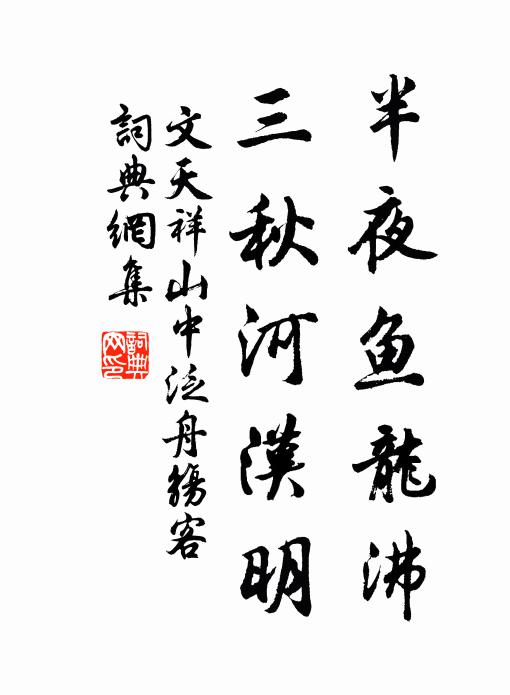 半夜鱼龍沸
三秋河漢明
文天祥山中泛舟觴客
詞典網集
詞典網印